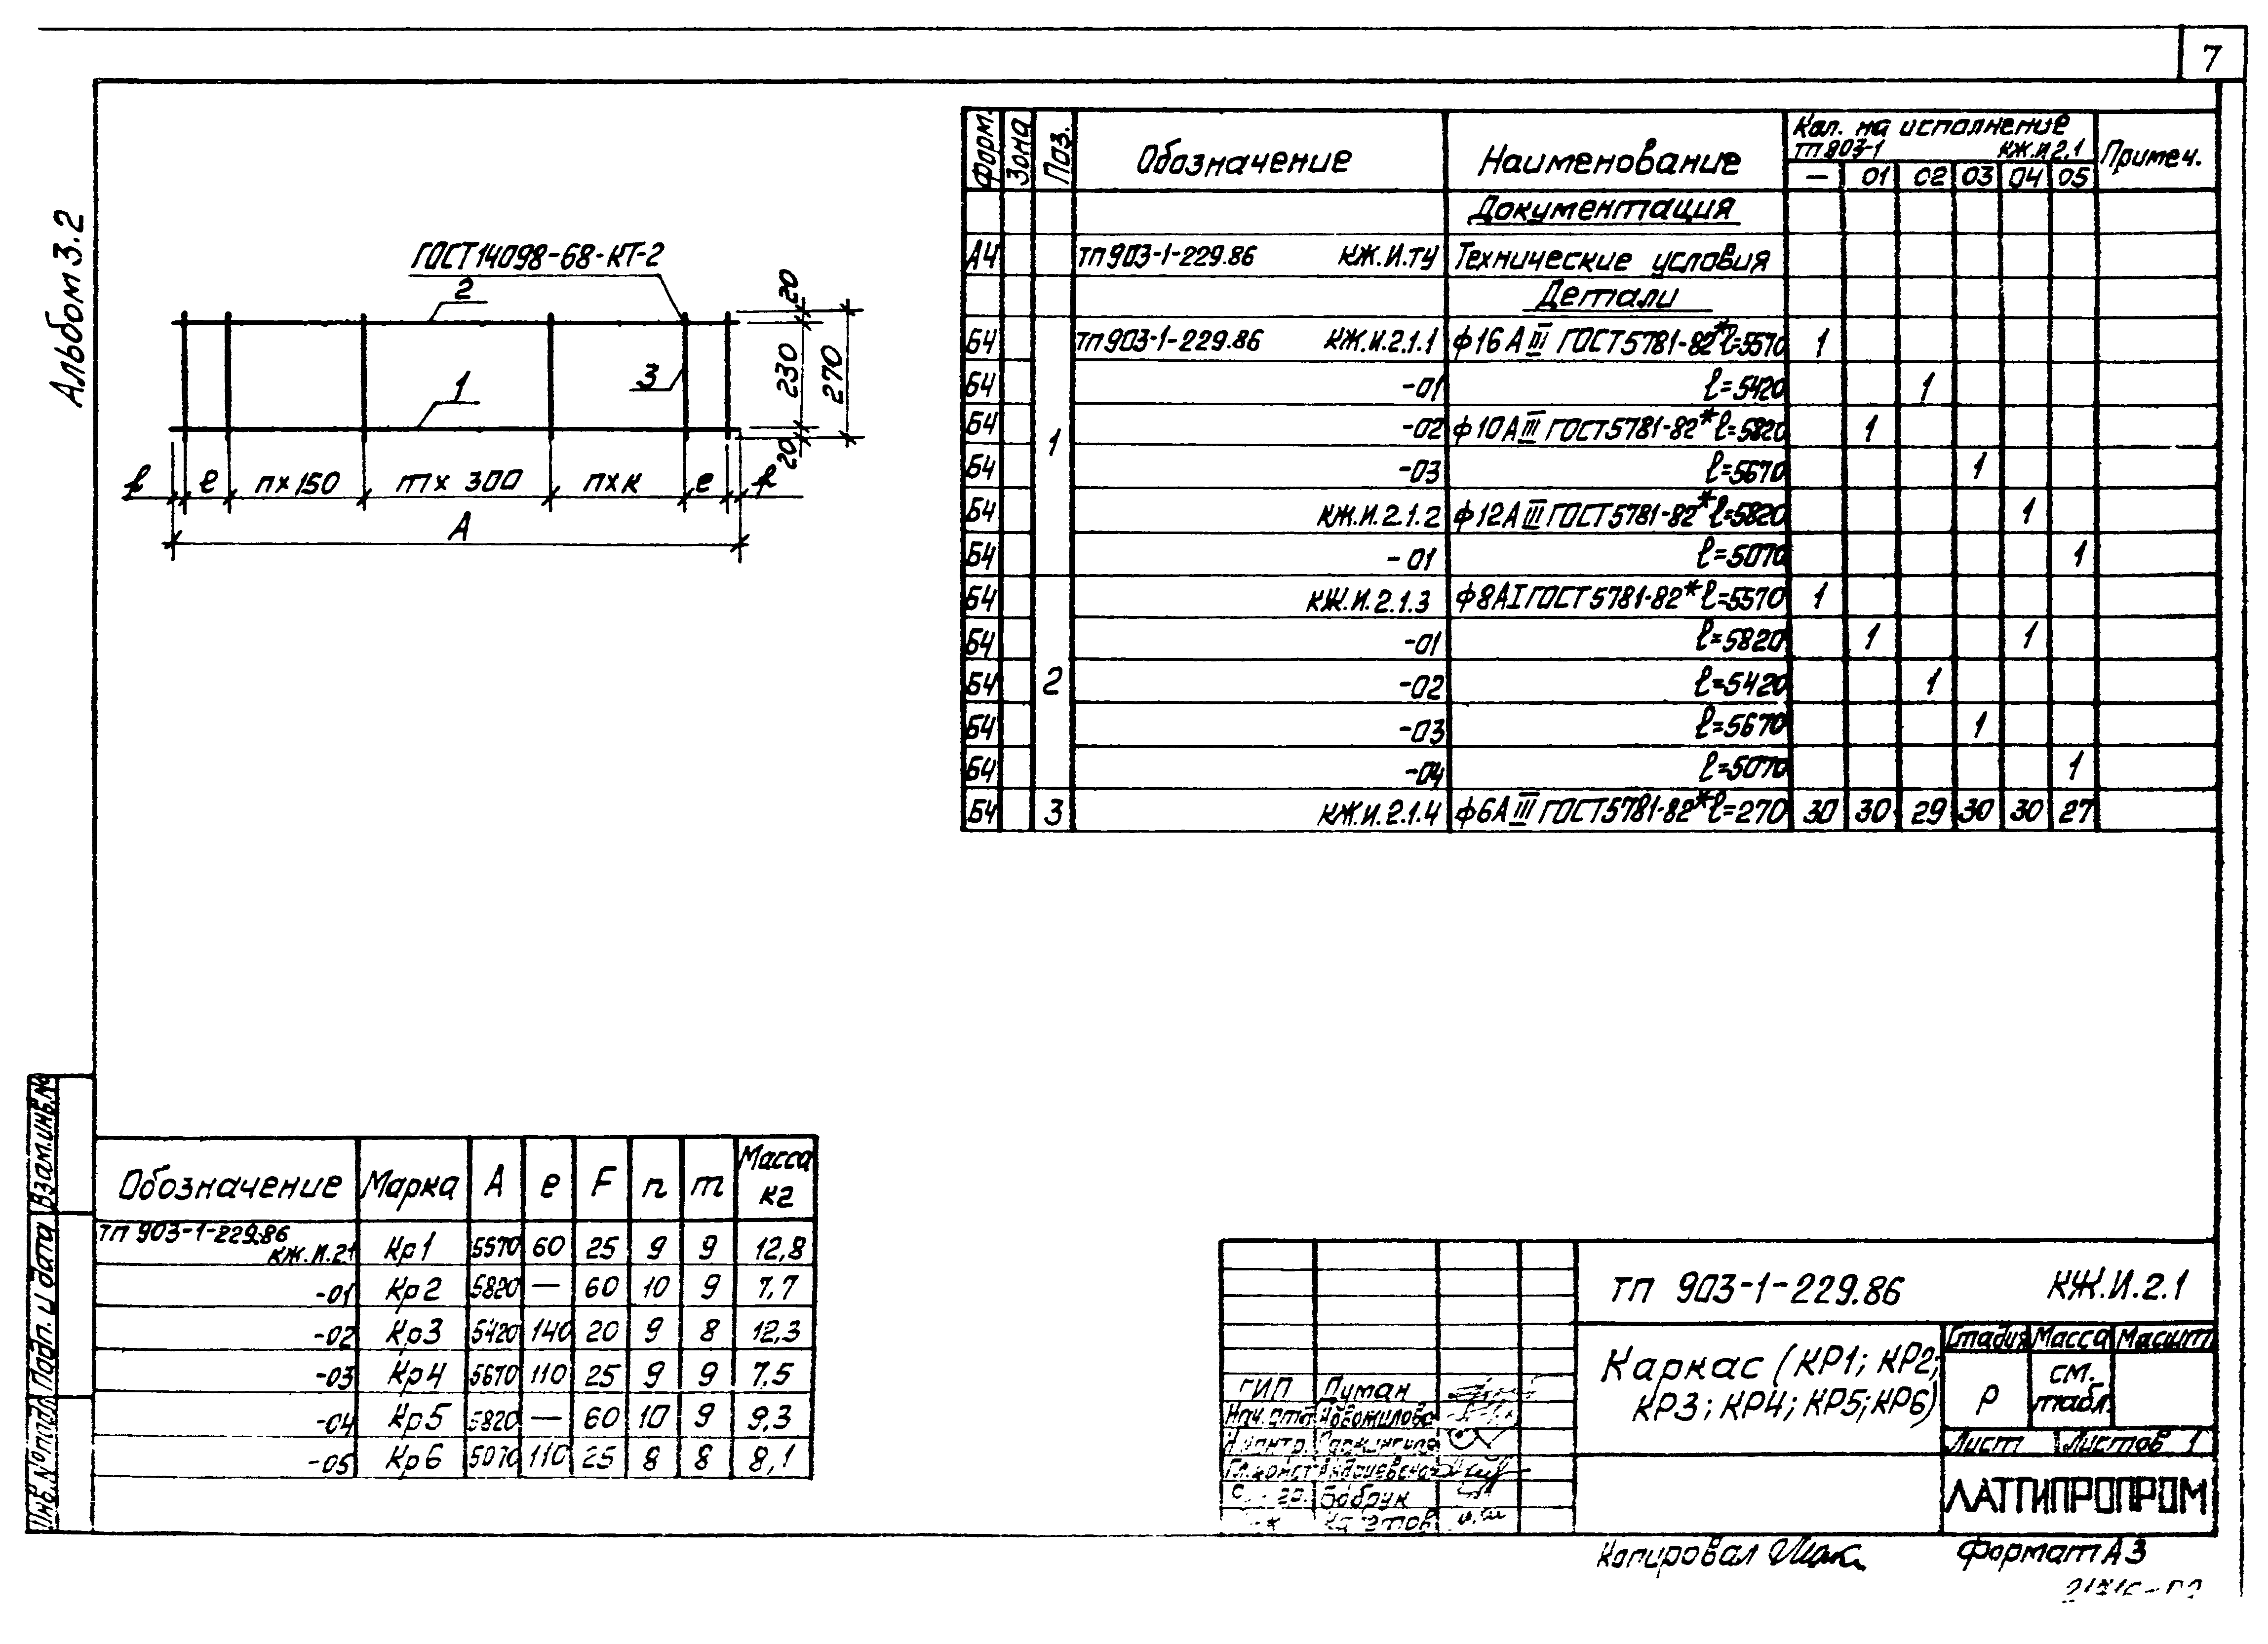 7
Альбом 3.2
ГОСТ 14098-68-КТ-2
2
1
3
20
230
20
270
f e n×150 m×300 n×к e f
А
Форм. Зона Поз. Обозначение Наименование Кол. на исполнение Примеч.
тп 803-1 КЖ.И2.1
— 01 02 03 04 05
Документация
А4 тп 903-1-229.86 КЖ.И.ТУ Технические условия
Детали
Б4 1 тп 903-1-229.86 КЖ.И.2.1.1 ф16АIII ГОСТ5781-82* ℓ=5570 1
Б4 -01 ℓ=5420 1
Б4 -02 ф10АIII ГОСТ5781-82* ℓ=5820 1
Б4 -03 ℓ=5670 1
Б4 КЖ.И.2.1.2 ф12АIII ГОСТ5781-82* ℓ=5820 1
Б4 -01 ℓ=5070 1
Б4 2 КЖ.И.2.1.3 ф8АI ГОСТ5781-82* ℓ=5570 1
Б4 -01 ℓ=5820 1 1
Б4 -02 ℓ=5420 1
Б4 -03 ℓ=5670 1
Б4 -04 ℓ=5070 1
Б4 3 КЖ.И.2.1.4 ф6АIII ГОСТ5781-82* ℓ=270 30 30 29 30 30 27
Обозначение Марка А e F n m Масса кг
тп 903-1-229.86
КЖ.И.2.1 Кр1 5570 60 25 9 9 12,8
-01 Кр2 5820 — 60 10 9 7,7
-02 Кр3 5420 140 20 9 8 12,3
-03 Кр4 5670 110 25 9 9 7,5
-04 Кр5 5820 — 60 10 9 9,3
-05 Кр6 5070 110 25 8 8 8,1
Взам.инв.№
Подп. и дата
Инв.№подл.
тп 903-1-229.86 КЖ.И.2.1
Каркас (КР1; КР2;
КР3; КР4; КР5; КР6)
Стадия Масса Масшт
Р см. табл.
Лист Листов 1
ЛАТГИПРОПРОМ
ГИП Пуман
Нач. отд. Новомилова
Н.контр.
Гл.конст
гр. Бобрук
Копировал
Формат А3